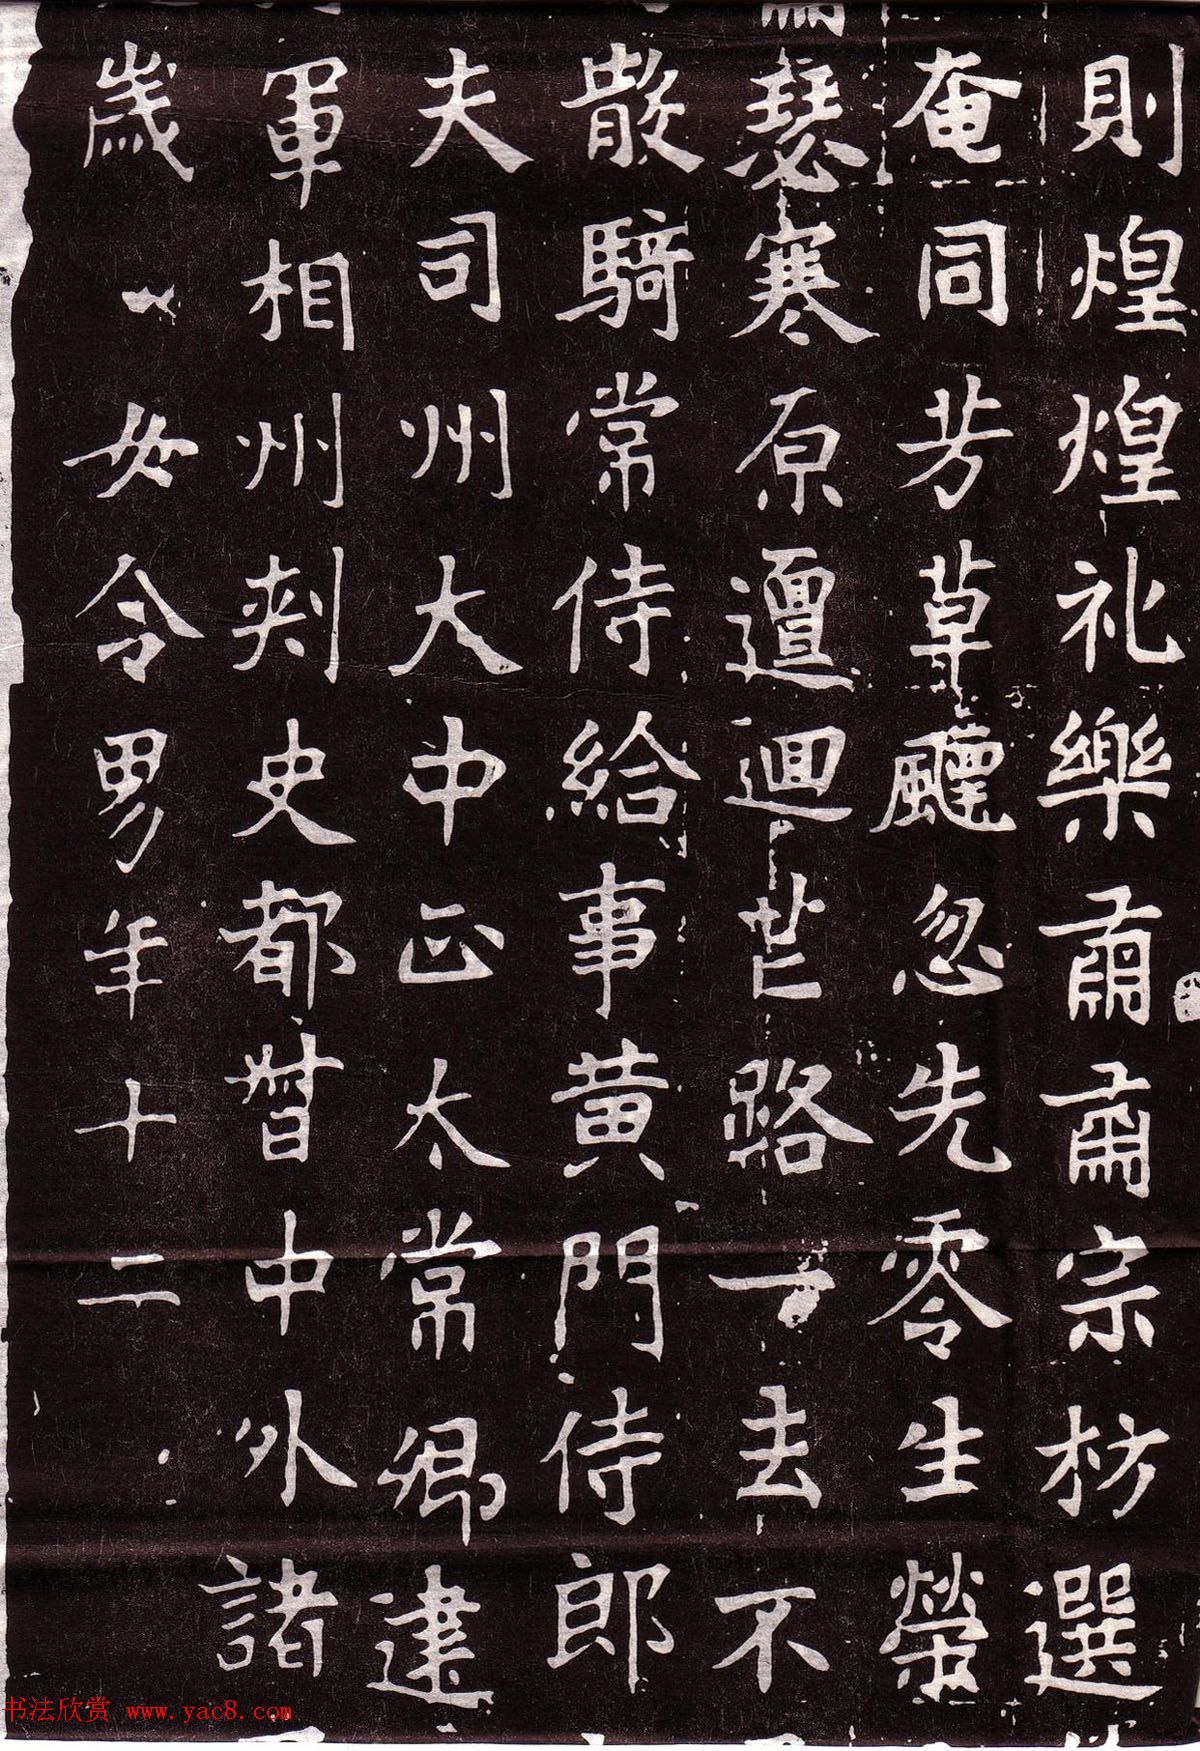 則煌煌礼樂甭甭宗枋選
奄同芳草飃忽先零生榮
瑟寒原邅迴芒路一去不
散騎常侍給事黄門侍郎
夫司州大中正太常卿建
軍相州刺史都督中外諸
歲 女令男年十二
书法欣赏 www.yac8.com